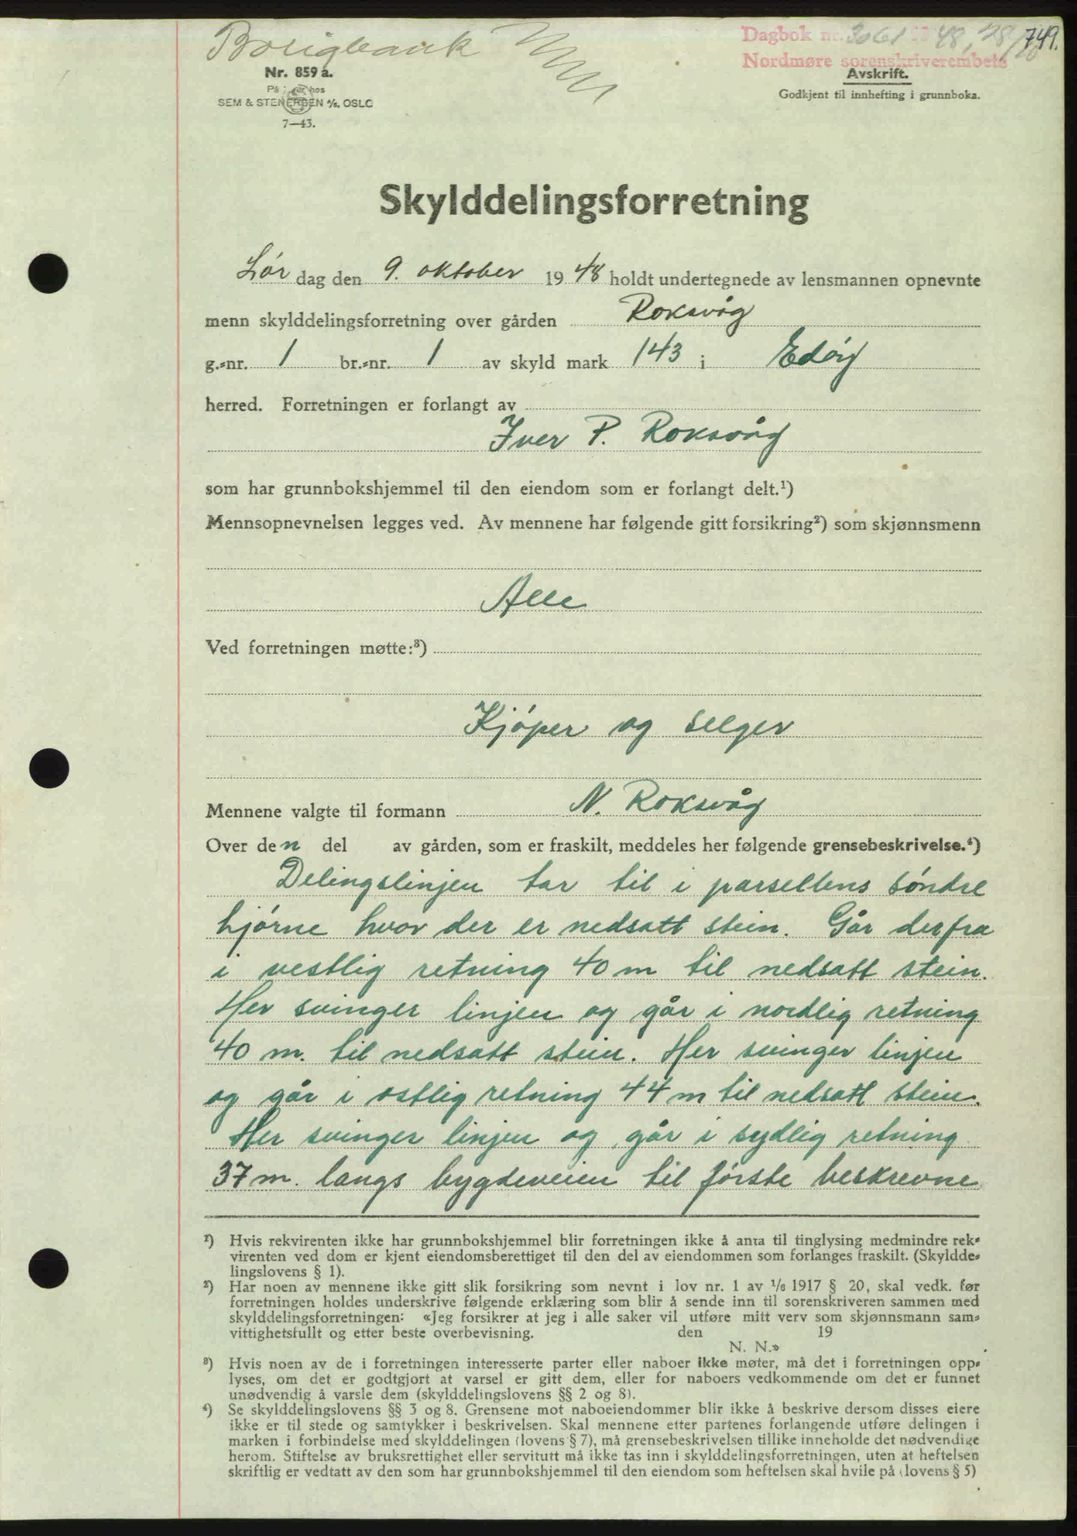 Boligbank
Dagbok nr. 3061 1948, 28/10
749.
Nordmøre sorenskriverembete
Nr. 859 a.
Avskrift.
På lager hos
Godkjent til innhefting i grunnboka.
SEM & STENERSEN A/S, OSLO
7—43.
Skylddelingsforretning
Lør dag den 9. oktober 1948 holdt undertegnede av lensmannen opnevnte
menn skylddelingsforretning over gården Roksvåg
g.-nr. 1 br.-nr. 1 av skyld mark 143 i Edøy
herred. Forretningen er forlangt av
Iver P. Roksvåg
som har grunnbokshjemmel til den eiendom som er forlangt delt.¹)
Mennsopnevnelsen legges ved. Av mennene har følgende gitt forsikring²) som skjønnsmenn
Alle
Ved forretningen møtte:³)
Kjøper og selger
Mennene valgte til formann N. Roksvåg
Over den del av gården, som er fraskilt, meddeles her følgende grensebeskrivelse.⁴)
Delingslinjen tar til i parsellens søndre
hjørne hvor der er nedsatt stein. Går derfra
i vestlig retning 40 m til nedsatt stein.
Her svinger linjen og går i nordlig retning
40 m. til nedsatt stein. Her svinger linjen
og går i østlig retning 44 m til nedsatt stein.
Her svinger linjen og går i sydlig retning
37 m. langs bygdeveien til første beskrevne
¹) Hvis rekvirenten ikke har grunnbokshjemmel blir forretningen ikke å anta til tinglysing medmindre rek-
virenten ved dom er kjent eiendomsberettiget til den del av eiendommen som forlanges fraskilt. (Skyldde-
lingslovens § 1).
²) Har noen av mennene ikke gitt slik forsikring som nevnt i lov nr. 1 av 1/6 1917 § 20, skal vedk. før
forretningen holdes underskrive følgende erklæring som blir å sende inn til sorenskriveren sammen med
skylddelingsforretningen: «Jeg forsikrer at jeg i alle saker vil utføre mitt verv som skjønnsmann sam-
vittighetsfullt og etter beste overbevisning. den 19
N. N.»
³) Hvis noen av de i forretningen interesserte parter eller naboer ikke møter, må det i forretningen opp-
lyses, om det er godtgjort at varsel er gitt dem, eller for naboers vedkommende om det er funnet
unødvendig å varsle dem (skylddelingslovens §§ 2 og 8).
⁴) Se skylddelingslovens §§ 3 og 8. Grensene mot naboeiendommer blir ikke å beskrive dersom disses eiere
ikke er til stede og samtykker i beskrivelsen. Skal mennene etter partenes forlangende utføre delingen i
marken i forbindelse med skylddelingen (lovens § 7), må grensebeskrivelsen tillike inneholde det nødvendige
herom. Stiftelse av bruksrettighet eller servitutt må ikke tas inn i skylddelingsforretningen, uten at heftelsen
skriftlig er vedtatt av den som har grunnbokshjemmel til den eiendom som heftelsen skal hvile på (lovens § 5)